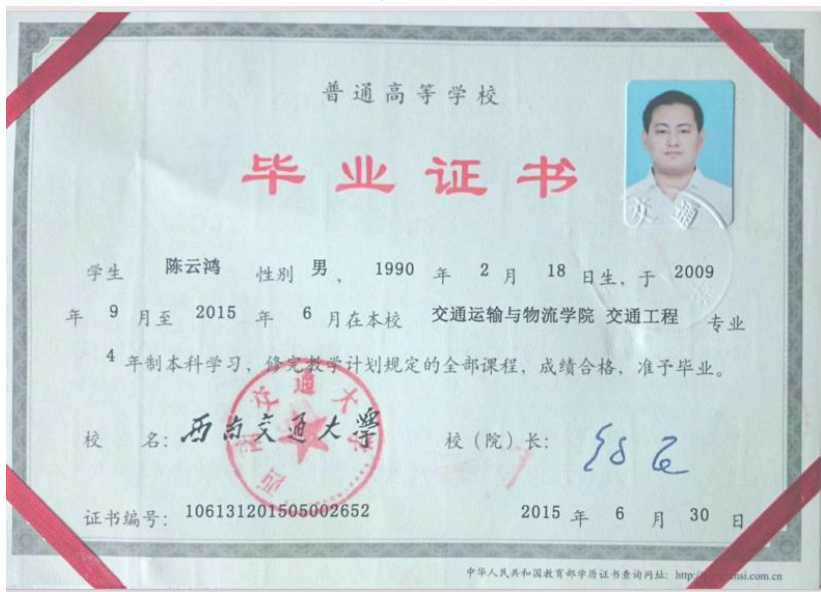 普通高等学校
毕业证书
学生 陈云鸿 性别 男 、 1990 年 2 月 18 日生，于 2009
年 9 月至 2015 年 6 月在本校 交通运输与物流学院 交通工程 专业
4 年制本科学习，修完教学计划规定的全部课程，成绩合格，准予毕业。
校 名：西南交通大学 校（院）长：
西南交通大学
交通
证书编号：106131201505002652 2015 年 6 月 30 日
中华人民共和国教育部学历证书查询网址：http:
.com.cn